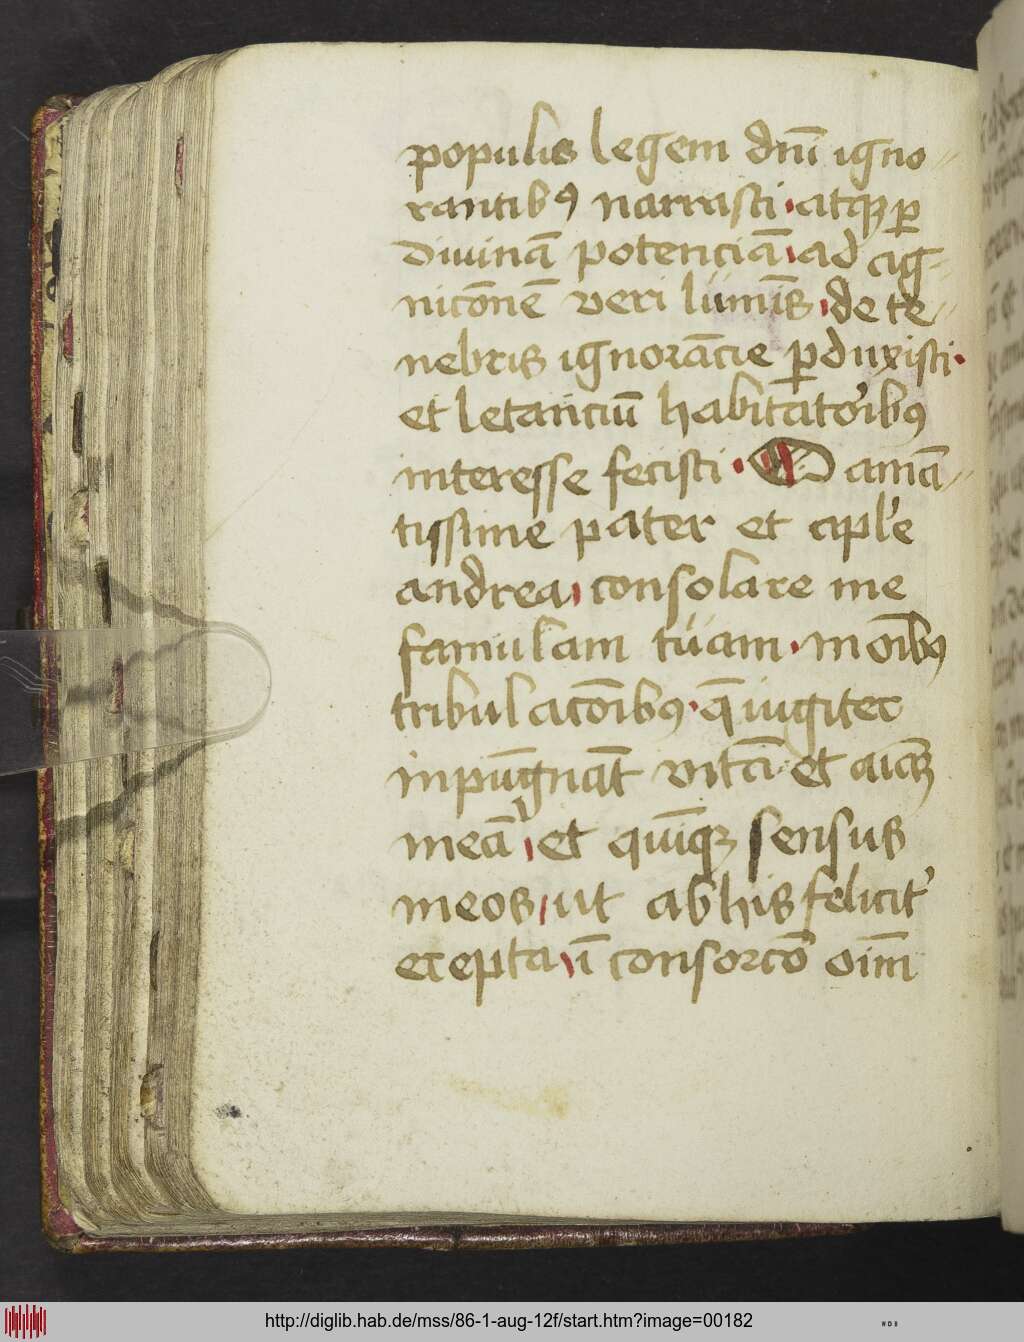 populis legem dnī igno-
rantibꝰ narrasti · atqꝫ ꝑ
divinā potenciā · ad ag-
nicōnē veri lumīs · de te-
nebris ignorācie ꝑduxisti ·
et letanciū habitatoribꝰ
interesse fecisti · O amā-
tissime pater et aple
andrea consolare me
famulam tuam · in oībꝰ
tribulacōibꝰ · q̄ iugiter
inpūgnāt vitā et aīaꝫ
meā et quīqꝫ sensus
meos ut ab his felicit'
erepta ī consorcō oīm
http://diglib.hab.de/mss/86-1-aug-12f/start.htm?image=00182